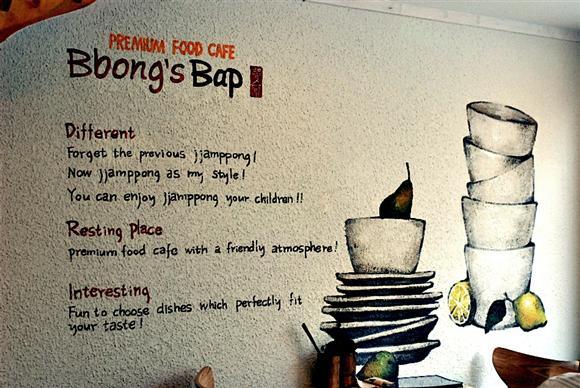 PREMIUM FOOD CAFE
Bbong's Bap
Different
Forget the previous jjamppong!
Now jjamppong as my style!
You can enjoy jjamppong your children!!
Resting Place
premium food cafe with a friendly atmosphere!
Interesting
Fun to choose dishes which perfectly fit
your taste!